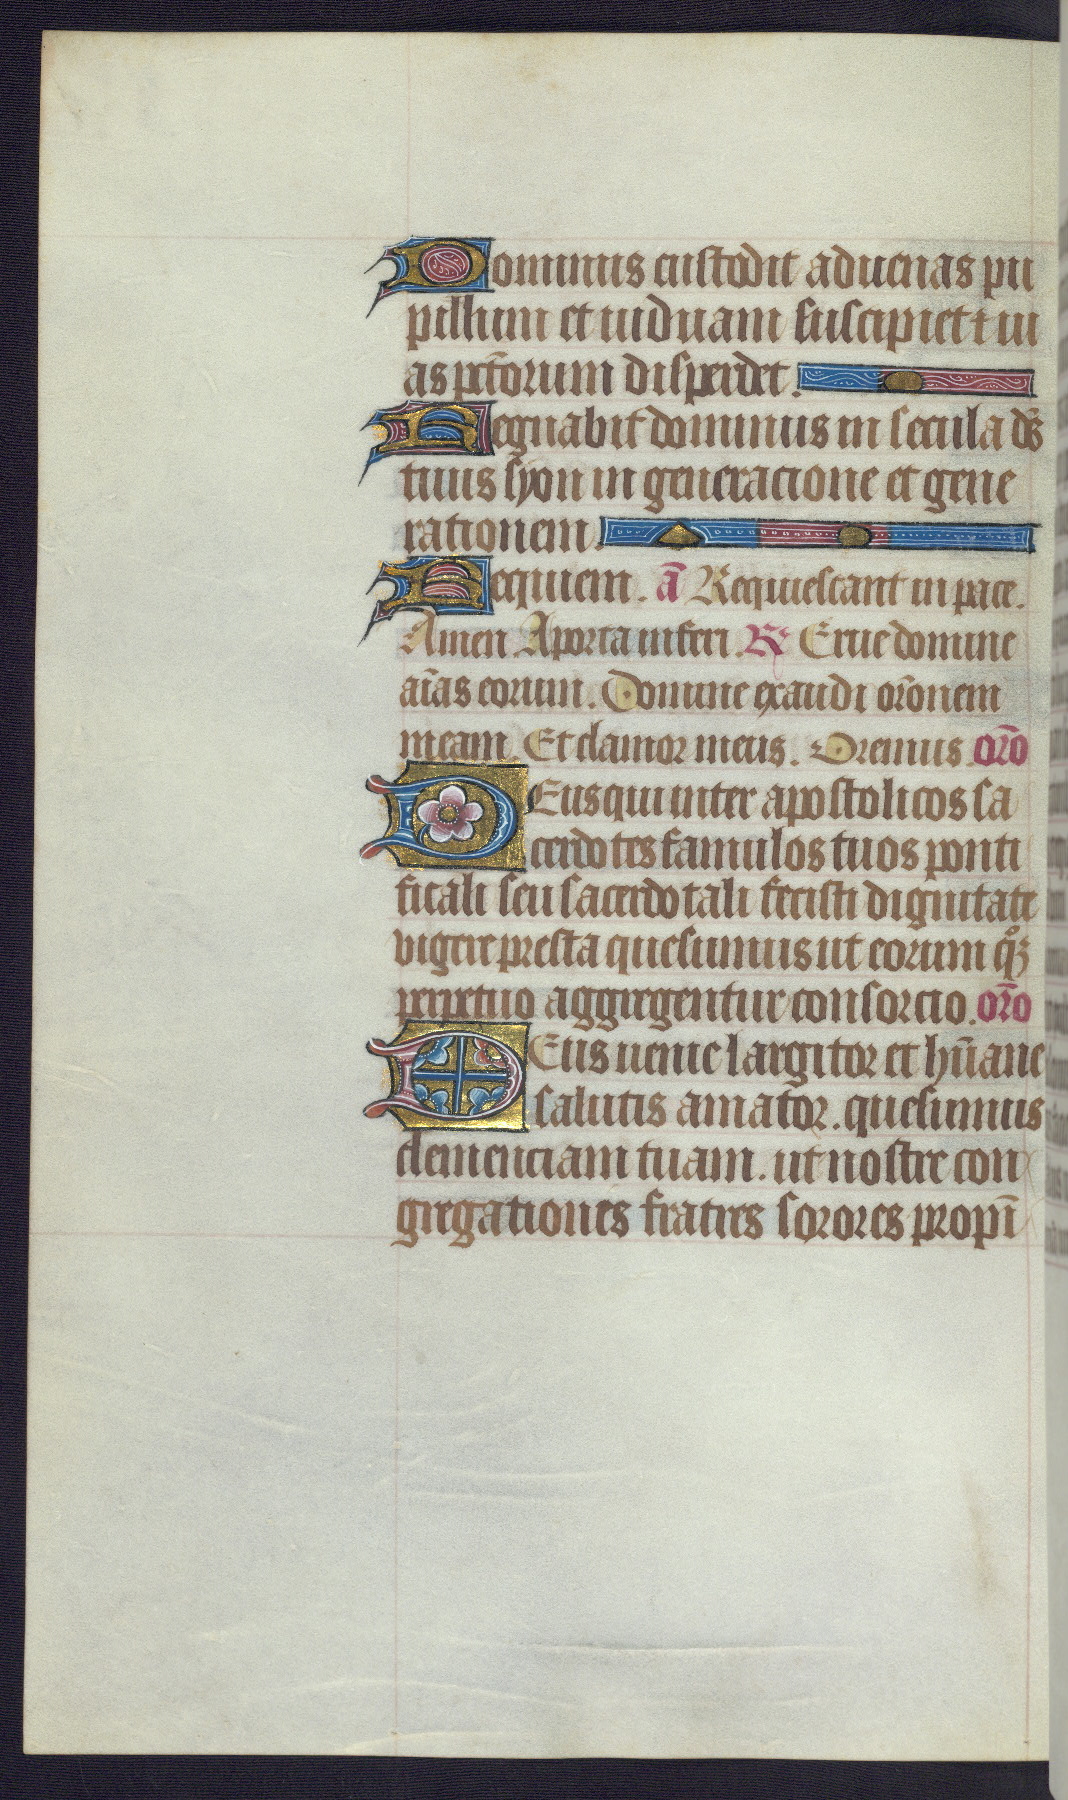 Dominus custodit aduenas pu
pillum et uiduam suscipiet ⁊ ui
as pctõrum disperdet.
Regnabit dominus in secula ds̃
tuus syon in generacione et gene
rationem.
Requiem. ã Requiescant in pace.
Amen A porta inferi. R̃ Erue domine
aĩas eorum. Domine exaudi orõnem
meam. Et clamor meus. Oremus orõ
DEus qui inter apostolicos sa
cerdotes famulos tuos ponti
ficali seu sacerdotali fecisti dignitate
vigere presta quesumus ut eorum qͦꝫ
perpetuo aggregentur consorcio. orõ
DEus uenie largitor et hũane
salutis amator. quesumus
clemenciam tuam. ut nostre con
gregationes fratres sorores propĩ